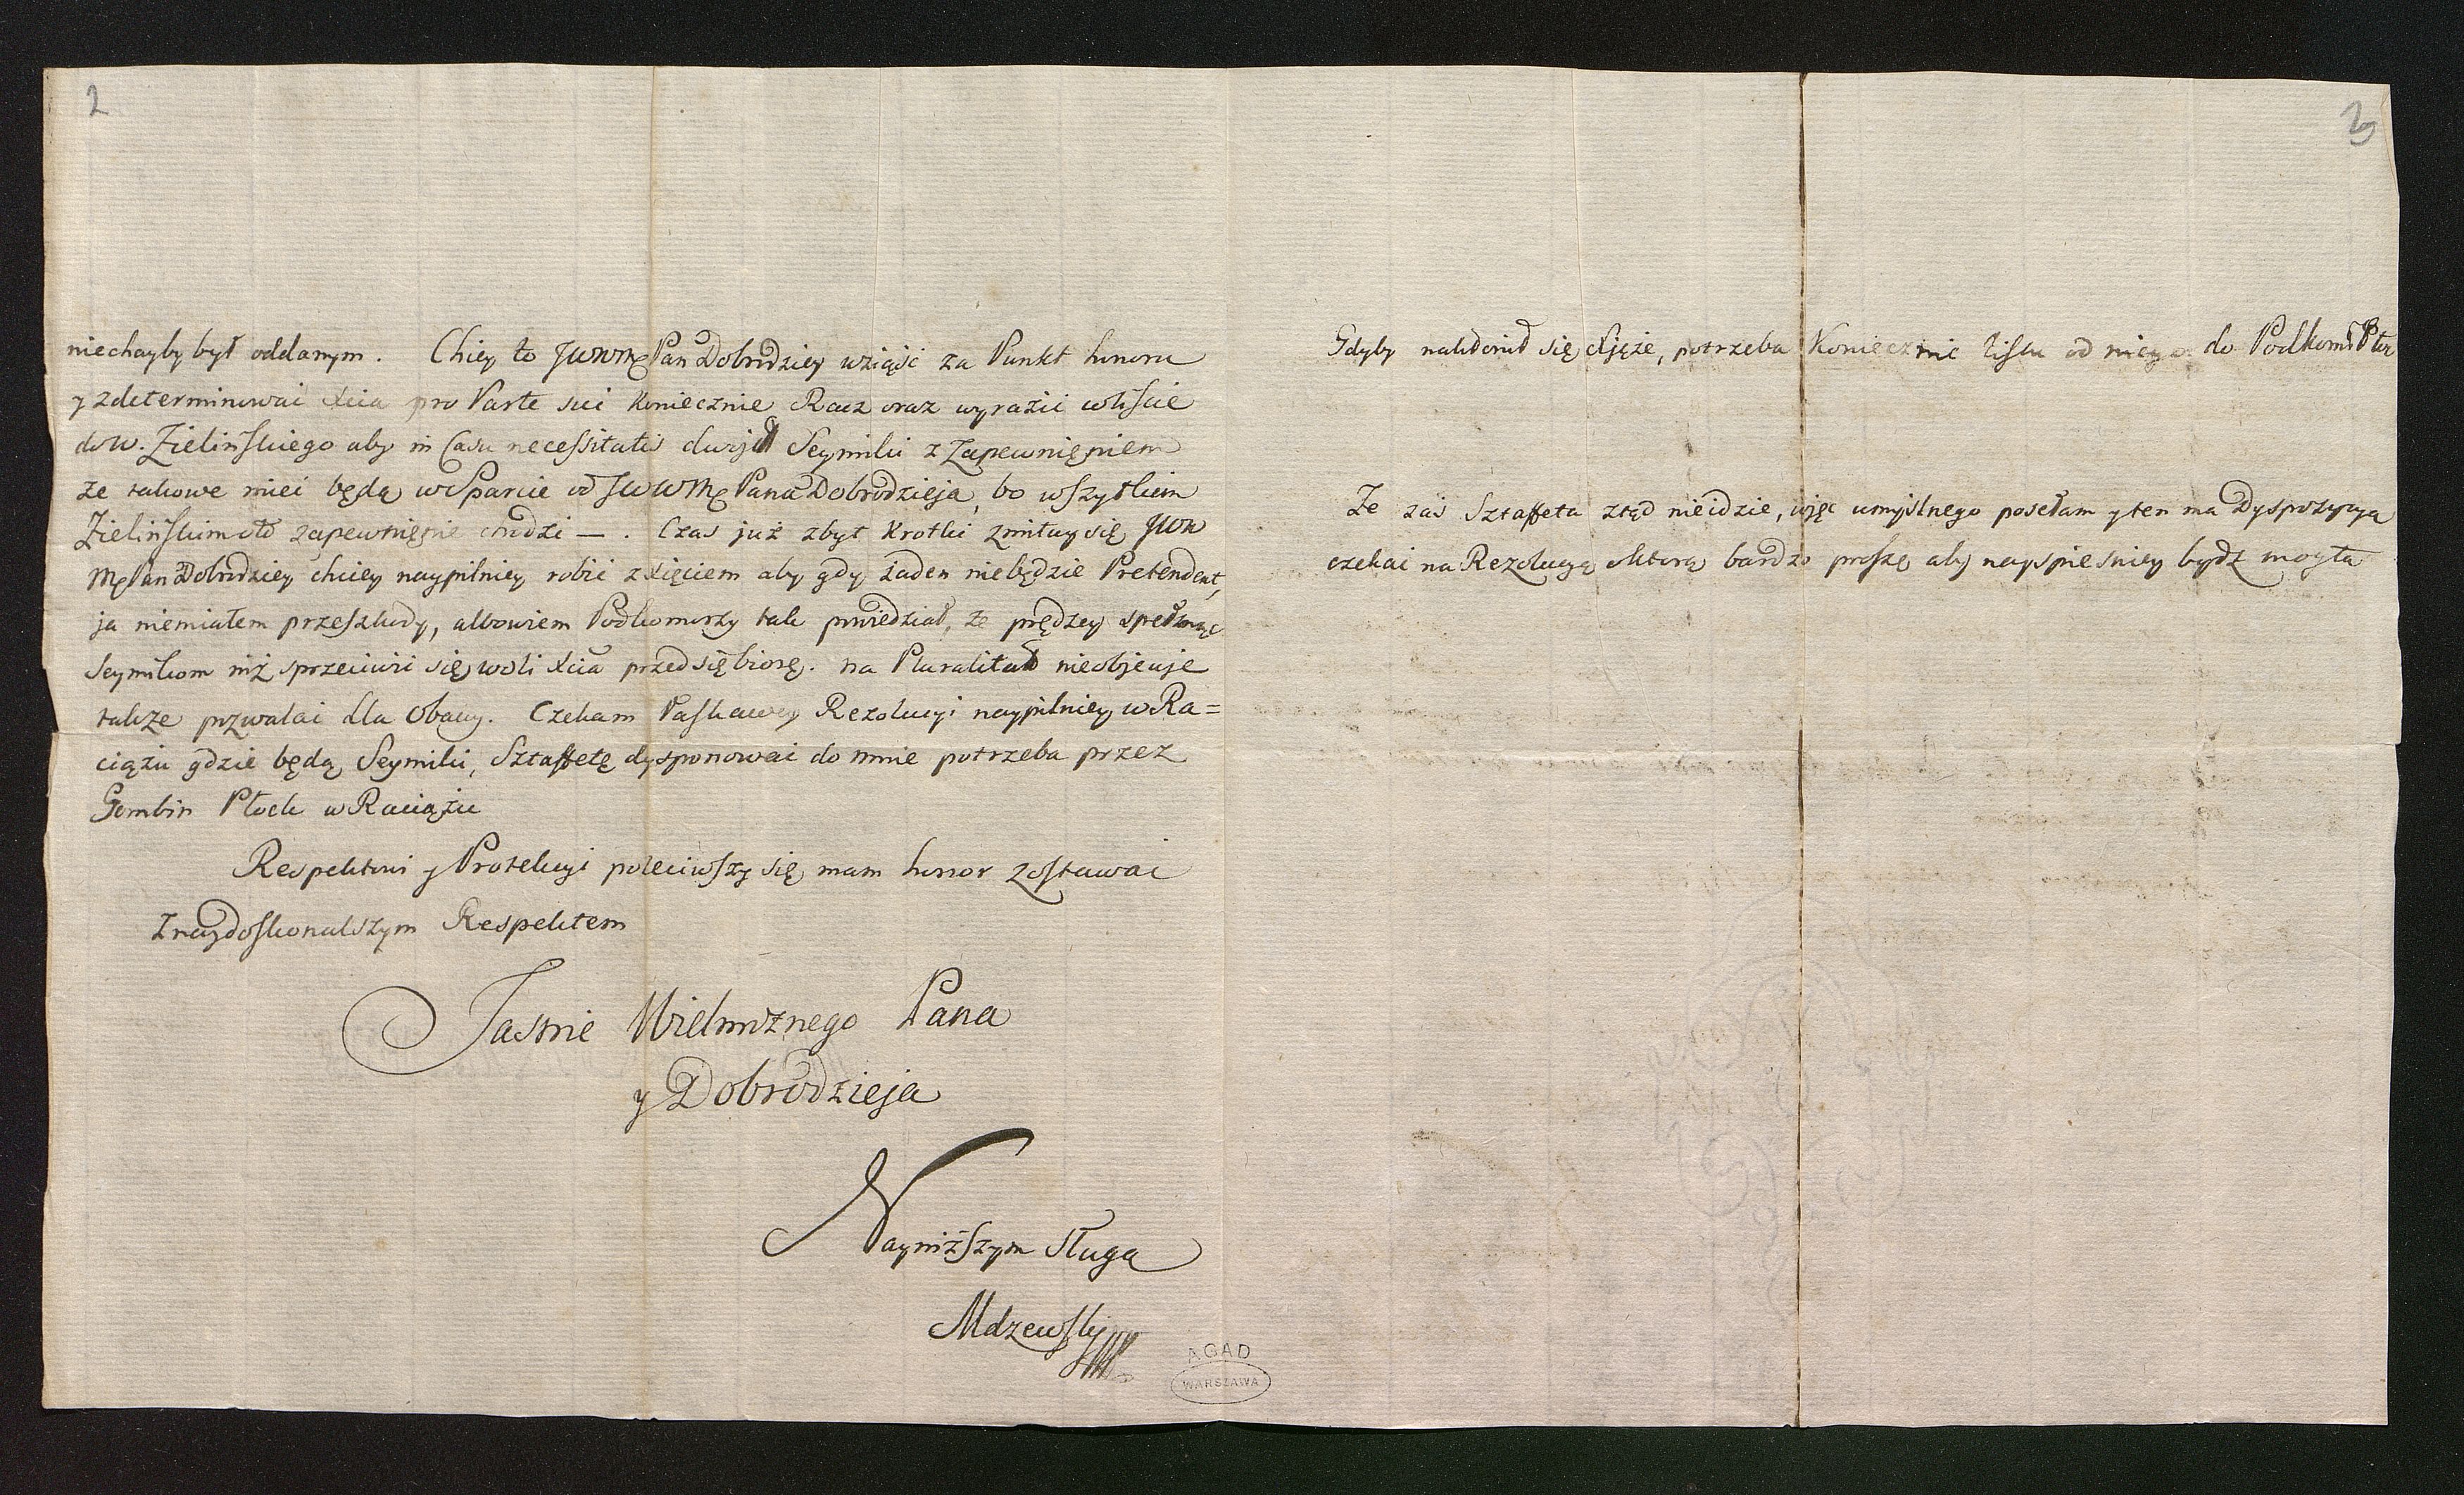 2
niechayby był oddanym. Chiey to JWWMę Pan Dobrodziey wziąść za Punkt honoru
y zdeterminować Xcia pro Parte sui koniecznie Racz oraz wyrazić wliście
do W. Zielińskiego aby in Casu necessitatis Seymiki z Zapewnięniem
że takowe mieć będą wsparcie od JWWMę Pana Dobrodzieja, bo wszystkiem
Zielińskim o to zapewnięnie chodzi — . Czas już zbyt krotki zmiłuy się JWW
Mę Pan Dobrodziey chciey naypilniey robić z Xięciem aby gdy żaden niebędzie Pretendent,
ja niemiałem przeszkody, albowiem Podkomorzy tak powiedział, że prędzey
Seymikom niż sprzeciwić się woli Xcia przedsiębiorę. na Pluralitas nieobjeuje
także pozwalać dla Obawy. Czekam Łaskawey Rezolucyi naypilniey w Ra=
ciążu gdzie będą Seymiki, Sztaffetę dysponować do mnie potrzeba przez
Gombin Płock w Raciążu
Respektowi y Protekcyi poleciwszy się mam honor zostawać
z naydoskonalszym Respektem
Jasnie Wielmożnego Pana
y Dobrodzieja
Nayniższym Sługą
Mdzewski
AGAD
WARSZAWA
3
Gdyby nakłonił się Xjąże, potrzeba koniecznie listu od niego do Podkom:
Że zaś Sztaffeta ztąd nieidzie, więc umyślnego posełam y ten ma Dyspozycyą
czekać na Rezolucyą ktorą bardzo proszę aby nayspieśniey bydź mogła